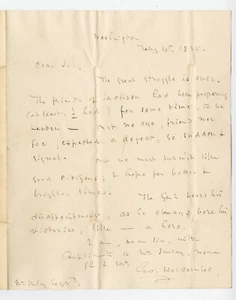 Washington
Feby 10th 1825.
Dear Sir.
The great struggle is over.
The friends of Jackson had been preparing
(at least, I had) for some time, to be
beaten — but no one, friend nor
foe, expected a defeat, so sudden &
signal. But we must submit like
good citizens, & hope for better &
brighter times.
The Genl bears his
disappointment, as he always bore his
victories, like — a hero.
I am, dear Sir, with
Compliments to Mrs
yr
Geo.